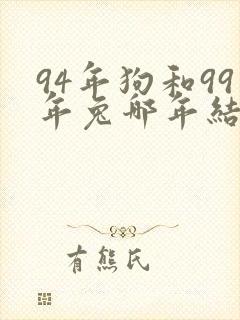 94年狗和99
年兔哪年結
有熊氏